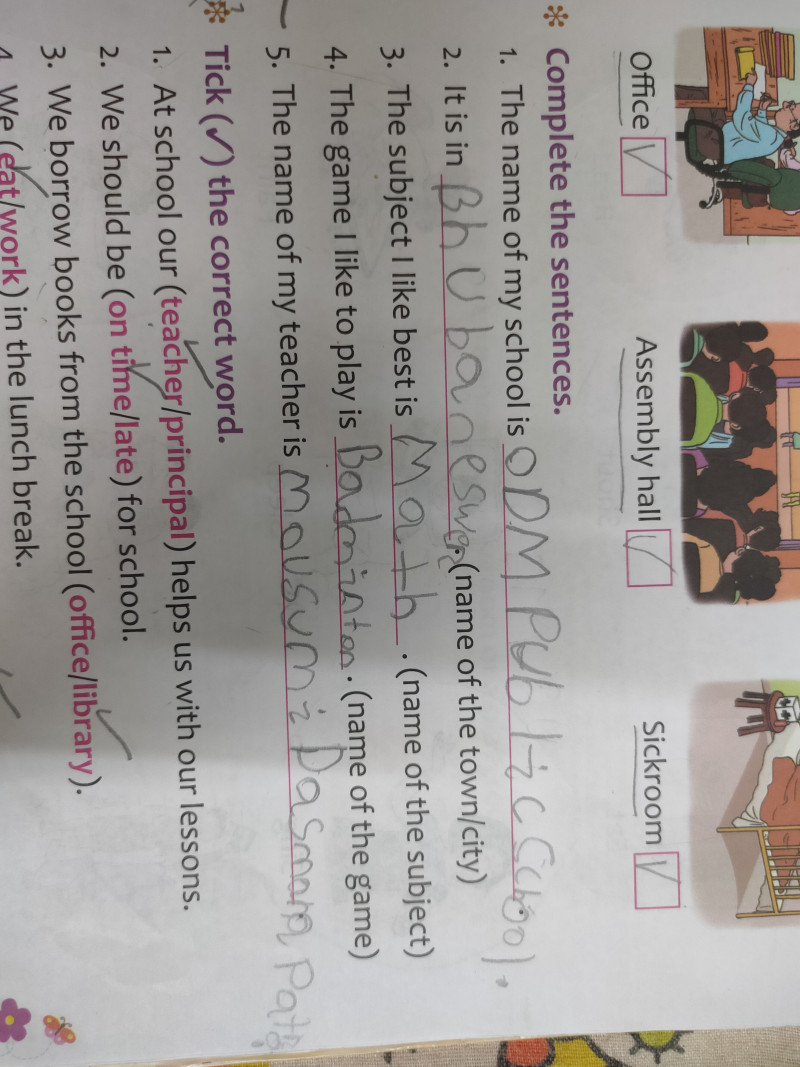 Office ✓ Assembly hall ✓ Sickroom ✓
* Complete the sentences.
1. The name of my school is ODM Public School.
2. It is in Bhubaneswar. (name of the town/city)
3. The subject I like best is Math. (name of the subject)
4. The game I like to play is Badminton. (name of the game)
5. The name of my teacher is Mousumi Dasmana
* Tick (✓) the correct word.
1. At school our (teacher/principal) helps us with our lessons.
2. We should be (on time/late) for school.
3. We borrow books from the school (office/library).
4. We (eat/work) in the lunch break.